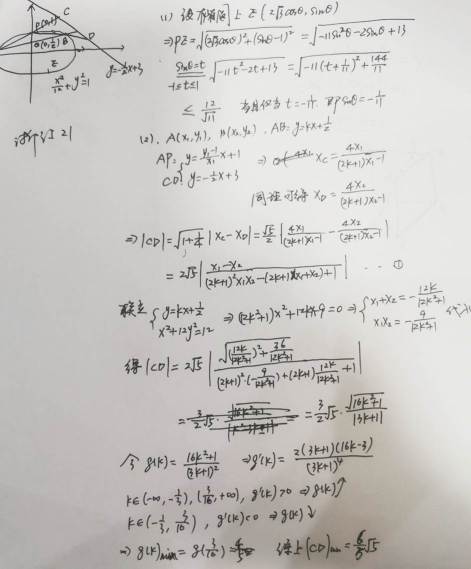 P(0,1)
C
Q(0,1/2) B
D
E
y=-1/2x+3
x²/12+y²=1
浙江 21
(1) 设 上 E(2√3cosθ, sinθ)
⇒PE=√((2√3cosθ)²+(sinθ-1)²)=√(-11sin²θ-2sinθ+13)
sinθ=t
-1≤t≤1
√(-11t²-2t+13)=√(-11(t+1/11)²+144/11)
≤ 12/√11 当且仅当 t=-1/11 即 sinθ=-1/11
(2). A(x₁,y₁), B(x₂,y₂), AB: y=kx+1/2
AP: y=(y₁-1)/x₁ x+1
CD: y=-1/2x+3
⇒ x_C=4x₁/((2k+1)x₁-1)
同理可得 x_D=4x₂/((2k+1)x₂-1)
⇒|CD|=√(1+1/4)|x_C-x_D|=√5/2|4x₁/((2k+1)x₁-1)-4x₂/((2k+1)x₂-1)|
=2√5|(x₁-x₂)/((2k+1)²x₁x₂-(2k+1)(x₁+x₂)+1)| ... ①
联立{y=kx+1/2 x²+12y²=12 ⇒(12k²+1)x²+12kx-9=0⇒{x₁+x₂=-12k/(12k²+1) x₁x₂=-9/(12k²+1) 代入①
得|CD|=2√5|√((12k/(12k²+1))²+36/(12k²+1))/((2k+1)²(-9/(12k²+1))+(2k+1)12k/(12k²+1)+1)|
=3/2√5·√(16k²+1)/|3k+1|
令g(k)=(16k²+1)/(3k+1)² ⇒g'(k)=2(3k+1)(16k-3)/(3k+1)⁴
k∈(-∞,-1/3),(3/16,+∞), g'(k)>0⇒g(k)↑
k∈(-1/3,3/16), g'(k)<0⇒g(k)↓
⇒g(k)min=g(3/16)= 综上|CD|min=6/5√5